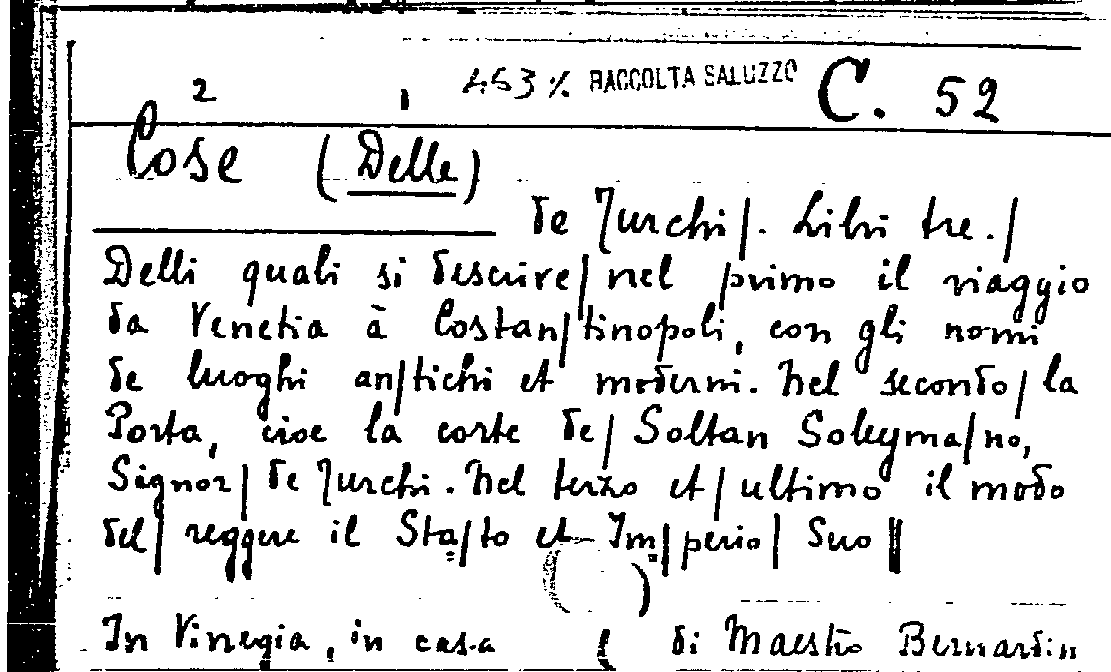 2 1 453 % RACCOLTA SALUZZO C. 52
Cose (Delle)
de Turchi/. Libri tre./
Delli quali si descrive/nel primo il viaggio
da Venetia à Costan/tinopoli, con gli nomi
de luoghi an/tichi et moderni. Nel secondo/la
Porta, cioe la corte de/ Soltan Soleyma/no,
Signor/ de Turchi. Nel terzo et/ultimo il modo
del/ reggere il Sta/to et Im/perio/ Suo ||
( )
In Vinegia, in casa ( di Maestro Bernardin